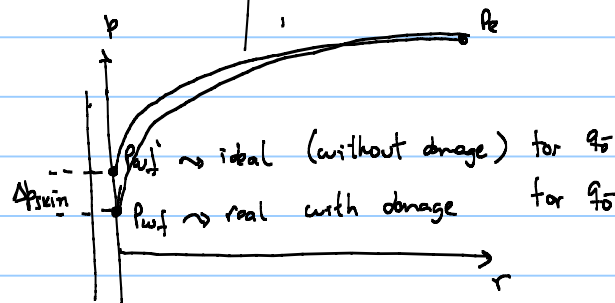 p
Pe
Pwf' ~> ideal (without damage) for qo
Δpskin
Pwf ~> real with damage for qo
r